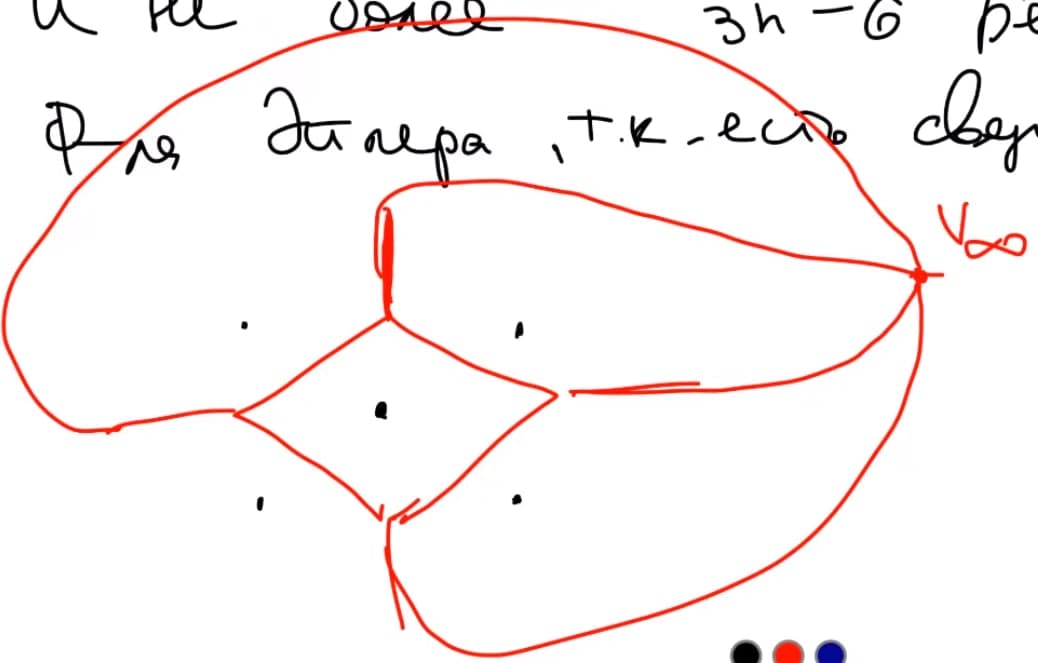 и не более 3n - 6 рё
Ф-ля Эйлера, т.к. есть
V∞